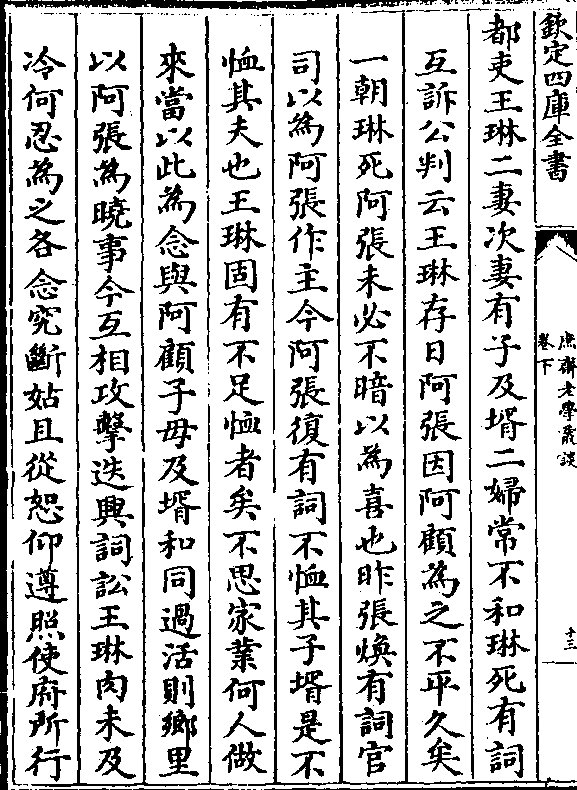 欽定四庫全書
庶齋老學叢談
卷下
十三
都吏王琳二妻次妻有子及壻二婦常不和琳死有詞
互訴公判云王琳存日阿張因阿顧為之不平久矣
一朝琳死阿張未必不暗以為喜也昨張煥有詞官
司以為阿張作主今阿張復有詞不恤其子壻是不
恤其夫也王琳固有不足恤者矣不思家業何人做
來當以此為念與阿顧子母及壻和同過活則鄉里
以阿張為曉事今互相攻擊迭興詞訟王琳肉未及
冷何忍為之各念究斷姑且從恕仰遵照使府所行